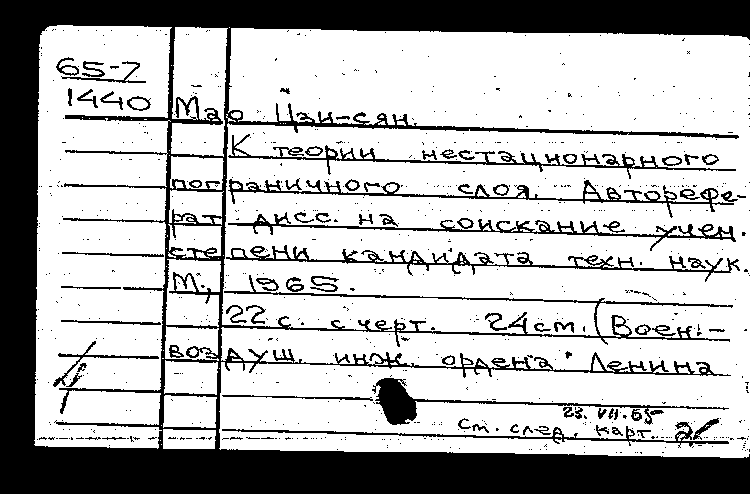 65-7
1440
Мао Цзи-сян.
К теории нестационарного
пограничного слоя. Авторефе-
рат дисс. на соискание учен.
степени кандидата техн. наук.
М., 1965.
22 с. с черт. 24 см. (Воен.-
воздуш. инж. ордена Ленина
23.VII.65
См. след. карт.